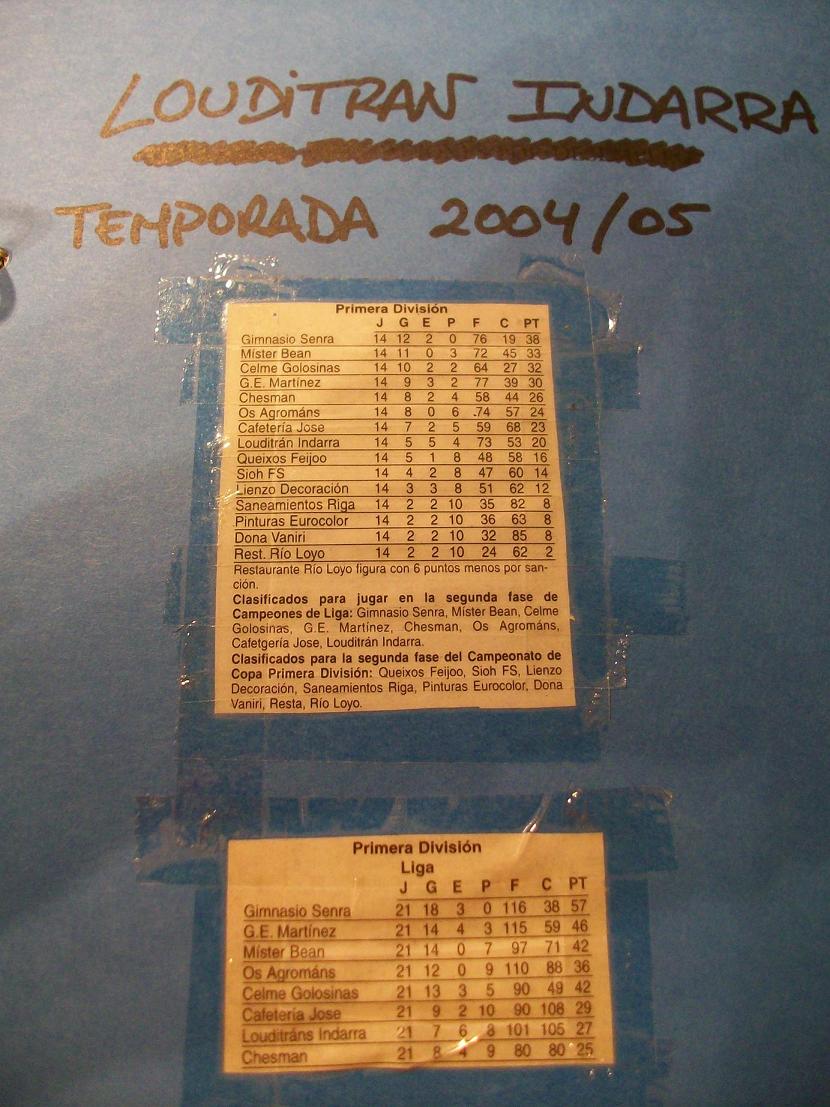 LOUDiTRAN INDARRA
TEMPORADA 2004/05
Primera División
J G E P F C PT
Gimnasio Senra 14 12 2 0 76 19 38
Míster Bean 14 11 0 3 72 45 33
Celme Golosinas 14 10 2 2 64 27 32
G.E. Martínez 14 9 3 2 77 39 30
Chesman 14 8 2 4 58 44 26
Os Agrománs 14 8 0 6 .74 57 24
Cafetería Jose 14 7 2 5 59 68 23
Louditrán Indarra 14 5 5 4 73 53 20
Queixos Feijoo 14 5 1 8 48 58 16
Sioh FS 14 4 2 8 47 60 14
Lienzo Decoración 14 3 3 8 51 62 12
Saneamientos Riga 14 2 2 10 35 82 8
Pinturas Eurocolor 14 2 2 10 36 63 8
Dona Vaniri 14 2 2 10 32 85 8
Rest. Río Loyo 14 2 2 10 24 62 2
Restaurante Río Loyo figura con 6 puntos menos por san-
ción.
Clasificados para jugar en la segunda fase de
Campeones de Liga: Gimnasio Senra, Míster Bean, Celme
Golosinas, G.E. Martínez, Chesman, Os Agrománs,
Cafetgería Jose, Louditrán Indarra.
Clasificados para la segunda fase del Campeonato de
Copa Primera División: Queixos Feijoo, Sioh FS, Lienzo
Decoración, Saneamientos Riga, Pinturas Eurocolor, Dona
Vaniri, Resta, Río Loyo.
Primera División
Liga
J G E P F C PT
Gimnasio Senra 21 18 3 0 116 38 57
G.E. Martínez 21 14 4 3 115 59 46
Míster Bean 21 14 0 7 97 71 42
Os Agrománs 21 12 0 9 110 88 36
Celme Golosinas 21 13 3 5 90 49 42
Cafetería Jose 21 9 2 10 90 108 29
Louditráns Indarra 21 7 6 8 101 105 27
Chesman 21 8 4 9 80 80 25